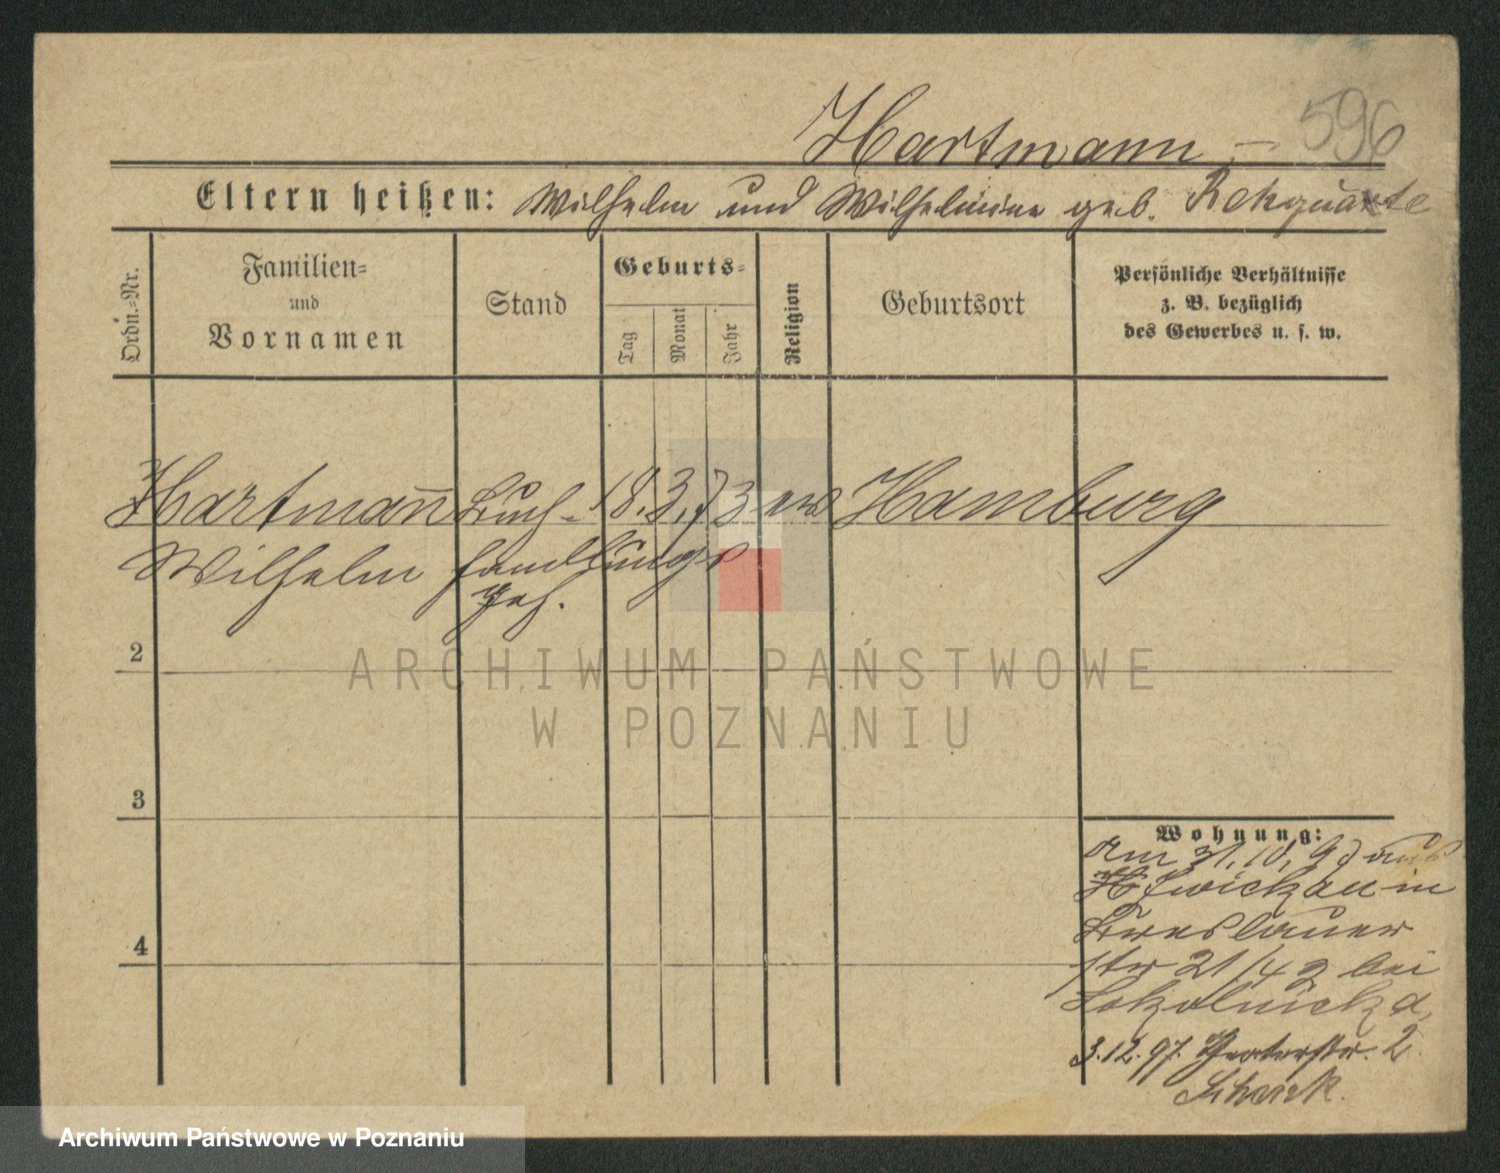 596
Hartmann –
Eltern heißen: Wilhelm und Wilhelmine geb.
Ordn.-Nr.
Familien-
und
Vornamen
Stand
Geburts-
Tag
Monat
Jahr
Religion
Geburtsort
Persönliche Verhältnisse
z. B. bezüglich
des Gewerbes u. s. w.
Hartmann̄ Buch- 18. 3. 73 ev Hamburg
Wilhelm handlungs
geh.
2
ARCHIWUM PAŃSTWOWE
W POZNANIU
3
Wohnung:
am 31. 10. 97 aus
Zwickau in
Breslauer
str 21/42 bei
4
3.12.97. Theaterstr. 2.
Archiwum Państwowe w Poznaniu